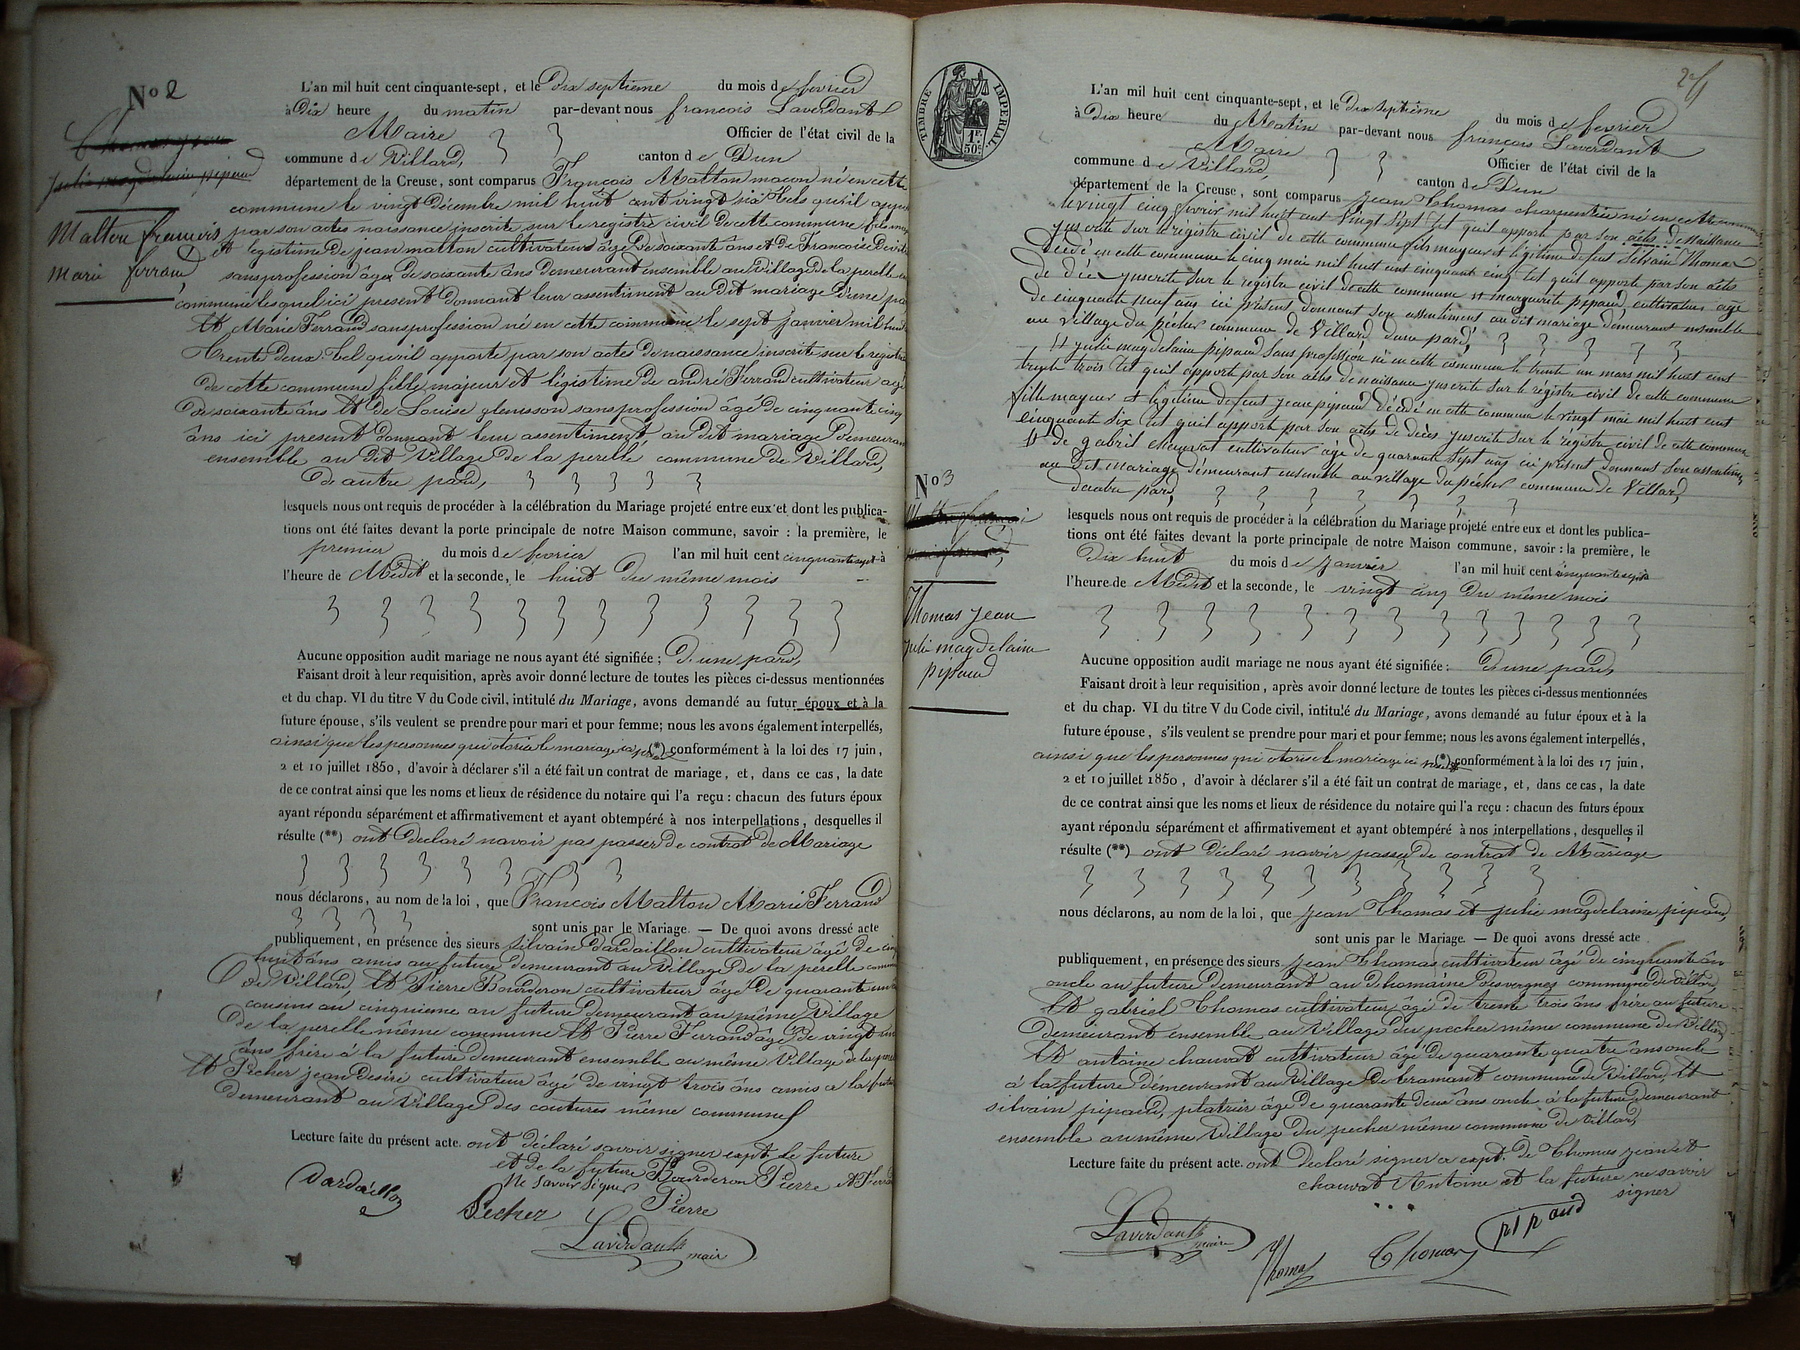 N.º 2
Thomas jean
julie magdelaine pipaud
Malton francois
Marie ferrand,
L'an mil huit cent cinquante-sept, et le Dix septieme du mois de fevrier
à Dix heure du matin par-devant nous francois Laverdant
Maire Officier de l'état civil de la
commune de Villard, canton de Dun
département de la Creuse, sont comparus François Malton macon né en cette
commune le vingt Décembre mil huit cent vingt six tels qu'il
par son actes naissance inscrite sur le registre civil de cette commune fils
et legistime de jean matton cultivateur âgé de soixante âns et de Francoise
sans profession âgé de soixante âns demeurant ensemble au village de la perelle
commune lesquel ici present donnant leur assentiment au dit mariage d'une
Et Marie Ferrand sans profession né en cette commune le sept janvier mil
trente deux tel qu'il apporte par son actes de naissance inscrite sur le registre
de cette commune fille majeur et légistime de andré Ferrand cultivateur agé
de soixante âns Et de Louise glenisson sans profession âgé de cinquante cinq
âns ici present donnant leur assentiment, au dit mariage demeurant
ensemble au dit village de la perelle commune de Villard,
De autre pard,
lesquels nous ont requis de procéder à la célébration du Mariage projeté entre eux et dont les publica-
tions ont été faites devant la porte principale de notre Maison commune, savoir : la première, le
premier du mois de fevrier l'an mil huit cent cinquante sept à
l'heure de Midit et la seconde, le huit du même mois
Aucune opposition audit mariage ne nous ayant été signifiée ; D'une pard,
Faisant droit à leur requisition, après avoir donné lecture de toutes les pièces ci-dessus mentionnées
et du chap. VI du titre V du Code civil, intitulé du Mariage, avons demandé au futur époux et à la
future épouse, s'ils veulent se prendre pour mari et pour femme; nous les avons également interpellés,
ainsi que les personnes qui otorise le mariage ici (*) conformément à la loi des 17 juin,
2 et 10 juillet 1850, d'avoir à déclarer s'il a été fait un contrat de mariage, et, dans ce cas, la date
de ce contrat ainsi que les noms et lieux de résidence du notaire qui l'a reçu : chacun des futurs époux
ayant répondu séparément et affirmativement et ayant obtempéré à nos interpellations, desquelles il
résulte (**) ont declaré navoir pas passer de contrat de Mariage
nous déclarons, au nom de la loi, que Francois Malton Marie Ferrand
sont unis par le Mariage. — De quoi avons dressé acte
publiquement, en présence des sieurs Silvain Dardaillon cultivateur âgé de
huit âns amis au future demeurant au village de la perelle
de Villard, Et Pierre Bourderon cultivateur âgé de quarante
cousins au cinquieme au future demeurant au même village
de la perelle même commune Et Pierre Ferrand âgé de vingt
âns frère à la future demeurant ensemble au même village de la
Et Pecher jean Desiré cultivateur âgé de vingt trois âns amis a la
demeurant au village des coutures même commune
Lecture faite du présent acte. ont déclaré savoir signer exept le future
et de la future Bourderon Pierre et Ferrand
Ne savoir signer Pierre
Dardaillon
Pecher
Laverdant maire
TIMBRE IMPÉRIAL
1F. 50c.
N.º 3
Malton francois
marie ferrand,
Thomas jean
julie magdelaine
pipaud
L'an mil huit cent cinquante-sept, et le Dix septième du mois de fevrier
à Dix heure du Matin par-devant nous francois Laverdant
Maire Officier de l'état civil de la
commune de Villard, canton de Dun
département de la Creuse, sont comparus jean Thomas charpentier né en cette commune
le vingt cinq fevrier mil huit cent vingt sept tel quil apporte par son actes de naissance
inscrite sur le registre civil de cette commune fils mayeur et legitime de feut Silvain Thomas
Décédé en cette commune le cinq mai mil huit cent cinquant cinq tel quil apporte par son actes
de décè inscrite sur le registre civil de cette commune et marguerite pipaud, cultivateur agé
de cinquante neuf ans ici présent donnant son assentiment au dit mariage demeurant ensemble
au village du pécher commune de Villard, dune pard,
Et julie magdelaine pipaud sans profession né en cette commune le trente un mars mil huit cent
trente trois tel quil apporte par son actes de naissance inscrite sur le régistre civil de cette commune
fille mayeur et legitime de feut jean pipaud décédé en cette commune le vingt mai mil huit cent
cinquante six tel quil apporte par son actes de décès inscrite sur le registre civil de cette commune
Et de gabriel chauvat cultivateur âgé de quarante sept ans ici présent donnant son assentiment
au dit mariage demeurant ensemble au village du pécher commune de Villard
dautre pard,
lesquels nous ont requis de procéder à la célébration du Mariage projeté entre eux et dont les publica-
tions ont été faites devant la porte principale de notre Maison commune, savoir : la première, le
Dix huit du mois de janvier l'an mil huit cent cinquante sept
l'heure de Midit et la seconde, le vingt cinq du même mois
Aucune opposition audit mariage ne nous ayant été signifiée : d'une pard,
Faisant droit à leur requisition, après avoir donné lecture de toutes les pièces ci-dessus mentionnées
et du chap. VI du titre V du Code civil, intitulé du Mariage, avons demandé au futur époux et à la
future épouse, s'ils veulent se prendre pour mari et pour femme; nous les avons également interpellés,
ainsi que les personnes qui otorise le mariage ici (*) conformément à la loi des 17 juin,
2 et 10 juillet 1850, d'avoir à déclarer s'il a été fait un contrat de mariage, et, dans ce cas, la date
de ce contrat ainsi que les noms et lieux de résidence du notaire qui l'a reçu : chacun des futurs époux
ayant répondu séparément et affirmativement et ayant obtempéré à nos interpellations, desquelles il
résulte (**) ont déclaré navoir passer de contrat de Mariage
nous déclarons, au nom de la loi, que jean Thomas et julie magdelaine pipaud,
sont unis par le Mariage. — De quoi avons dressé acte
publiquement, en présence des sieurs jean Thomas cultivateur âgé de cinquante ân
oncle au future demeurant au domaine des vergnes commune de Villard,
Et gabriel Thomas cultivateur âgé de trente trois âns frère au future
Demeurant ensemble au village du pecher même commune de Villard,
Et antoine chauvat cultivateur âgé de quarante quatre âns oncle
à la future Demeurant au village de bramant commune de Villard, Et
silvain pipaud, platrier âgé de quarante deux âns oncle à la future demeurant
ensemble au même village du pecher même commune de Villard,
Lecture faite du présent acte. ont declaré signer a exept. de Thomas jean et
chauvat Antoine et la future ne savoir
signer
Laverdant maire
Thomas
Thomas
pipaud